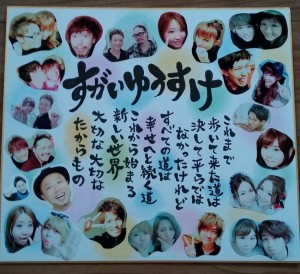 すがいゆうすけ
これまで
歩いて来た道は
決して平らでは
なかったけれど
すべての道は
幸せへと続く道
これから始まる
新しい世界
大切な大切な
たからもの